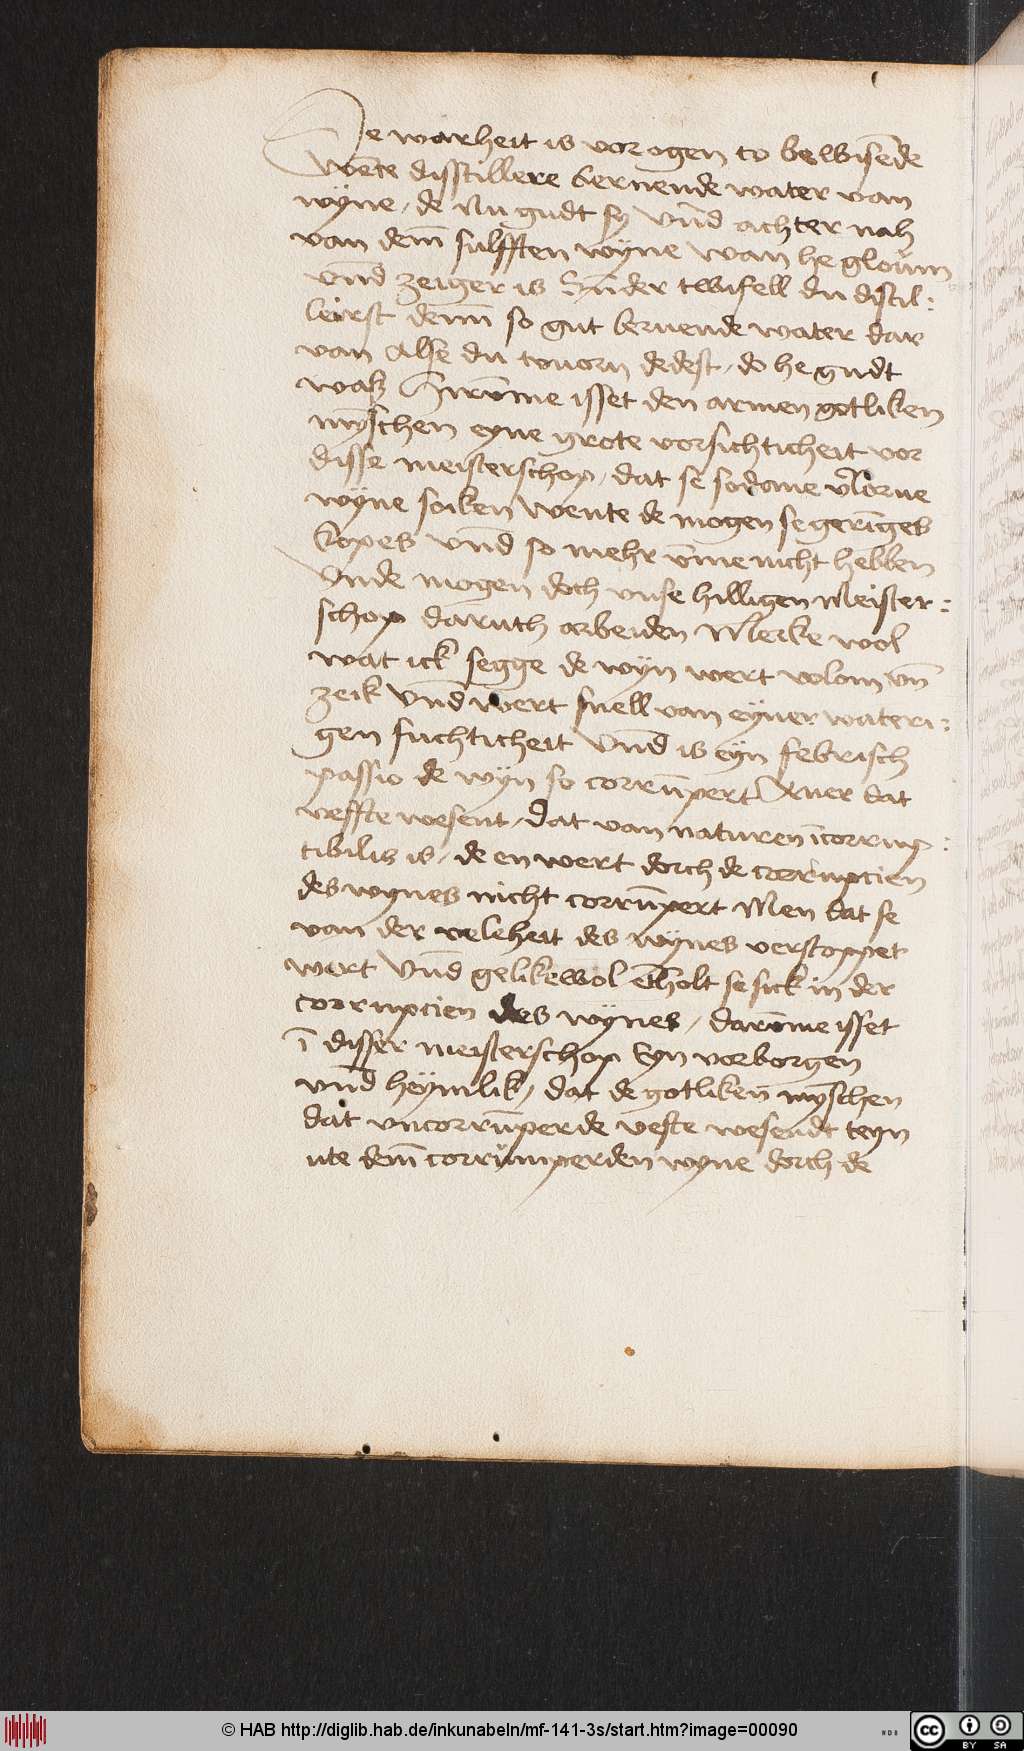 De warheit is vor ogen to bewisēde
wēte disstillere bernende water van
wyne / de nu gudt sy vnd achter nah
van dem̄ sulfften wyne wan he
vnd zeiger is Sunder twifell du distil:
leirst dem̄ so gut bernende water dar
van Alse du tuuorn dedest / do he gudt
waß Hirūme isset den armen gotliken
mȳschen eyne grote vorsichticheit vor
disse meisterschop / dat se sodane vlorne
wyne soiken wente de mogen se gerīges
kopes vnd so mehr vmme nicht hebben
Vnde mogen doch vnse hilligen Meister:
schop daruth arbeiden Merke wol
wat ick segge de wyn wert vōlom vn̄
zeik vnd wert snell van eyner wateri:
gen fuchticheit vnd is eyn febrisch
passio de wyn so corrūpert Auer dat
veffte wesent / dat van naturen īcorrup:
tibilis is / de en wert dorch de corrupcien
des wynes nicht corrūpert Men dat se
van der veleheit des wynes verstoppet
wert vnd gelikewol ētholt se sick in der
corrupcien des wynes / darūme isset
ī disser meisterschop Eyn vorborgen
vnd heymlik / dat de gotliken mȳschen
dat vncorrūperde vefte wesendt teyn
vte dem̄ corrumperden wyne dorch de
© HAB http://diglib.hab.de/inkunabeln/mf-141-3s/start.htm?image=00090
cc BY SA